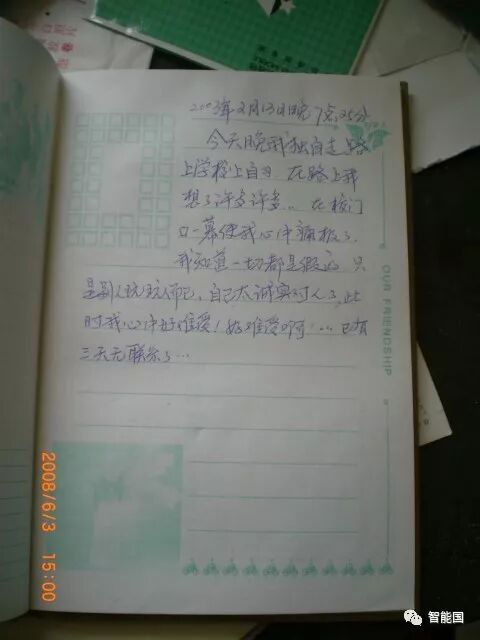 2003年2月13日晚7点25分
今天晚我独自走路
上学校上自习 在路上我
想了许多许多... 在校门
口一幕使我心冲痛极了.
我知道一切都是假的 只
是别人玩玩而已、自己太诚实对人了、此
时我心中好难受!好难受啊!... 已有
三天无联系了...
OUR FRIENDSHIP
2008/6/3 15:00
智能国